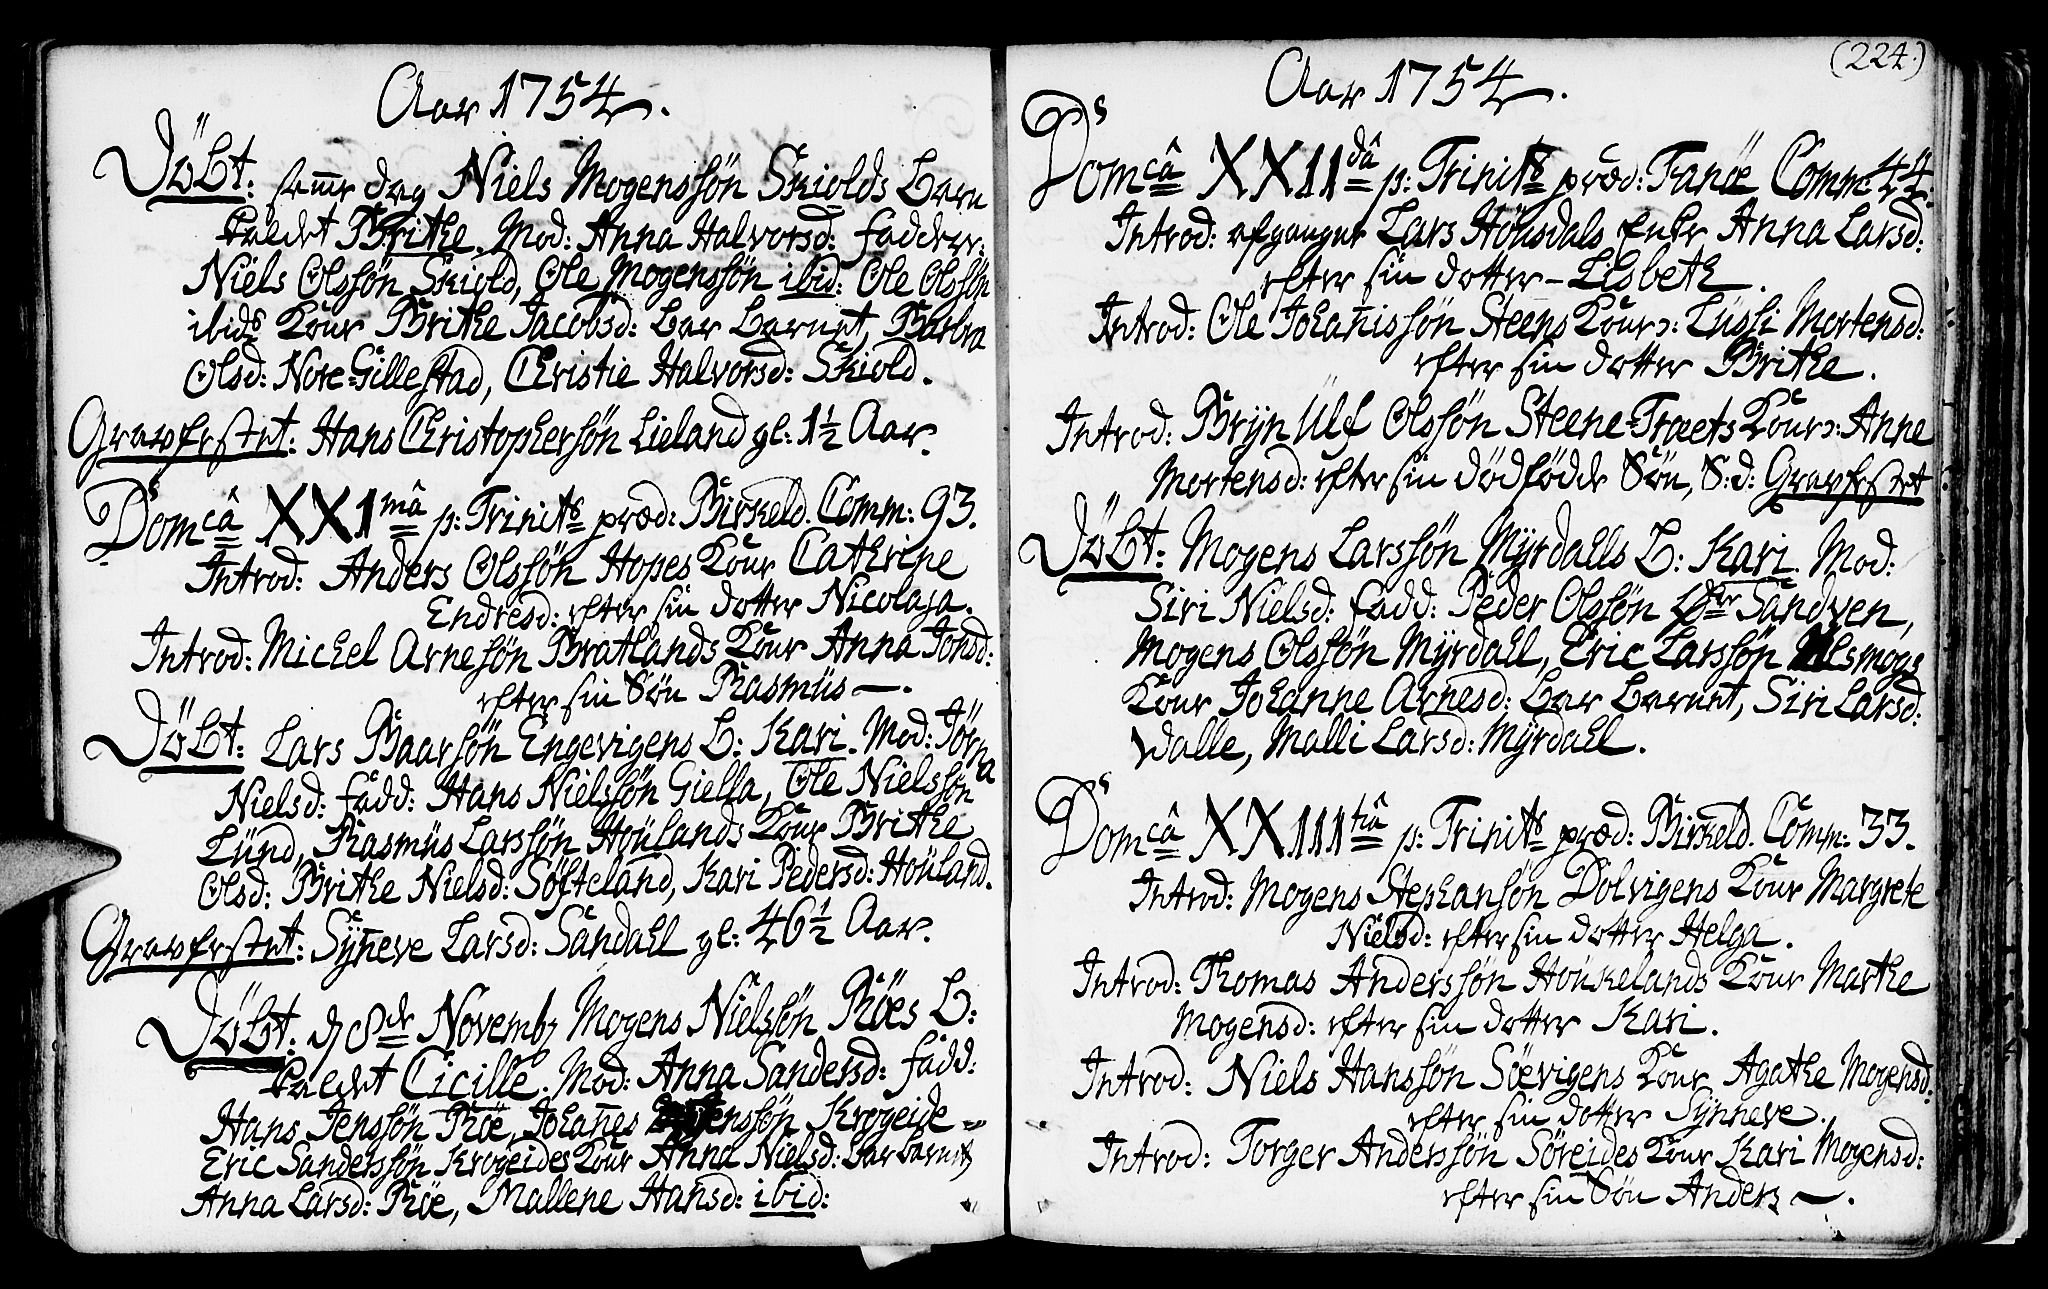 Aar 1754.
Döbt: samme dag Niels Mogenssön Skiolds Barn
kaldet Brithe. Mod: Anna Halvorsd: fadder:
Niels Olssön Skiold, Ole Mogenssön ibid: Ole Olssön
ibid: Kone Brithe Jacobsd: bar barnet, Barbra
Olsd: Nore-Gillestad, Christie Halvorsd: Skiold.
Gravfestet: Hans Christophersön Lieland gl: 1½ Aar.
Domcâ XXImâ p: Trinits præd: Birkeld. Comm: 93.
Introd: Anders Olssön Hopes Kone Cathrine
Endresd: efter sin dotter Nicolaja.
Introd: Michel Arnesön Bratlands Kone Anna Jonsd:
efter sin Sön Rasmus —.
Döbt: Lars Baarsön Engevigens b: Kari. Mod: Jörna
Nielsd: fadd: Hans Nielssön Giella, Ole Nielssön
Lund, Rasmus Larssön Houlands Kone Brithe
Olsd: Brithe Nielsd: Söfteland, Kari Pedersd: Houland.
Gravfestet: Syneve Larsd: Sandahl gl: 46½ Aar.
Döbt: d 8de Novemb: Mogens Nielssön Röes b:
kaldet Cicille. Mod: Anna Sandersd: fadd:
Hans Jenssön Röe, Johanes Krogeide
Eric Sanderssön Krogeides Kone Anna Nielsd: bar barnet
Anna Larsd: Röe, Mallene Hansd: ibid:
(224.)
Aar 1754.
Domcâ XXIIdâ p: Trinits præd: Fanöe Comm: 44.
Introd: afgangne Lars Hönsdals Enke Anna Larsd:
efter sin dotter – Lisbeth.
Introd: Ole Johanissön Steens Kone: Lussi Mortensd:
efter sin dotter Brithe.
Introd: Bryn Ulf Olssön Steene-Træets Kone: Anne
Mortensd: efter sin dödfödde Sön, S: d: Gravfestet
Döbt: Mogens Larssön Myrdalls b: Kari. Mod:
Siri Nielsd: fadd: Peder Olssön Sandven,
Mogens Olssön Myrdahl, Eric Larssön
Kone Johanne Arnesd: bar barnet, Siri Larsd:
Valle, Malli Larsd: Myrdahl.
Domcâ XXIIItiâ p: Trinits præd: Birkeld. Comm: 33.
Introd: Mogens Stephansön Dolvigens Kone Margrete
Nielsd: efter sin dotter Helga.
Introd: Thomas Anderssön Houkelands Kone Marthe
Mogensd: efter sin dotter Kari.
Introd: Niels Hanssön Söevigens Kone Agathe Mogensd:
efter sin dotter Synneve.
Introd: Torger Anderssön Söreides Kone Kari Mogensd:
efter sin Sön Anders —.